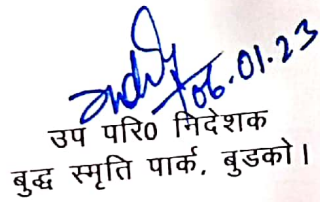 06.01.23
उप परि0 निदेशक
बुद्ध स्मृति पार्क, बुडको।